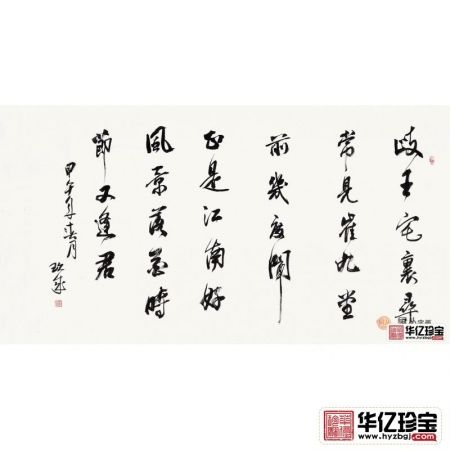 岐王宅裏尋
常見崔九堂
前幾度聞
正是江南好
風景落花時
節又逢君
甲午年春月
华亿珍宝
www.hyzbgj.com
华亿珍宝
www.hyzbgj.com